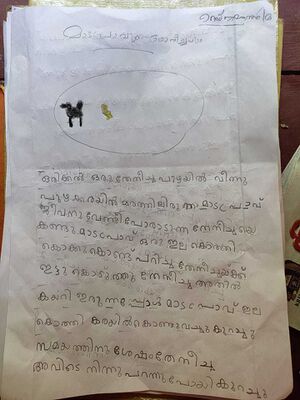 മാടപ്രാവും തേനീച്ചയും
ഒരിക്കൽ ഒരു തേനീച്ച പുഴയിൽ വീണു
പുഴ കരയിൽ മരത്തിലിരുന്ന മാടപ്രാവ്
ജീവനു വേണ്ടി പോരാടുന്ന തേനീച്ചയെ
കണ്ടു മാടപ്രാവ് ഒരു ഇല കൊത്തി
കൊക്കുകൊണ്ട് പറിച്ചു തേനീച്ചയ്ക്ക്
ഇട്ടു കൊടുത്തു തേനീച്ച അതിൽ
കയറി ഇരുന്നപ്പോൾ മാടപ്രാവ് ഇല
കൊത്തി കരയിൽ കൊണ്ടുവച്ചു കുറച്ചു
സമയത്തിനു ശേഷം തേനീച്ച
അവിടെ നിന്നു പറന്നു പോയി കുറച്ചു